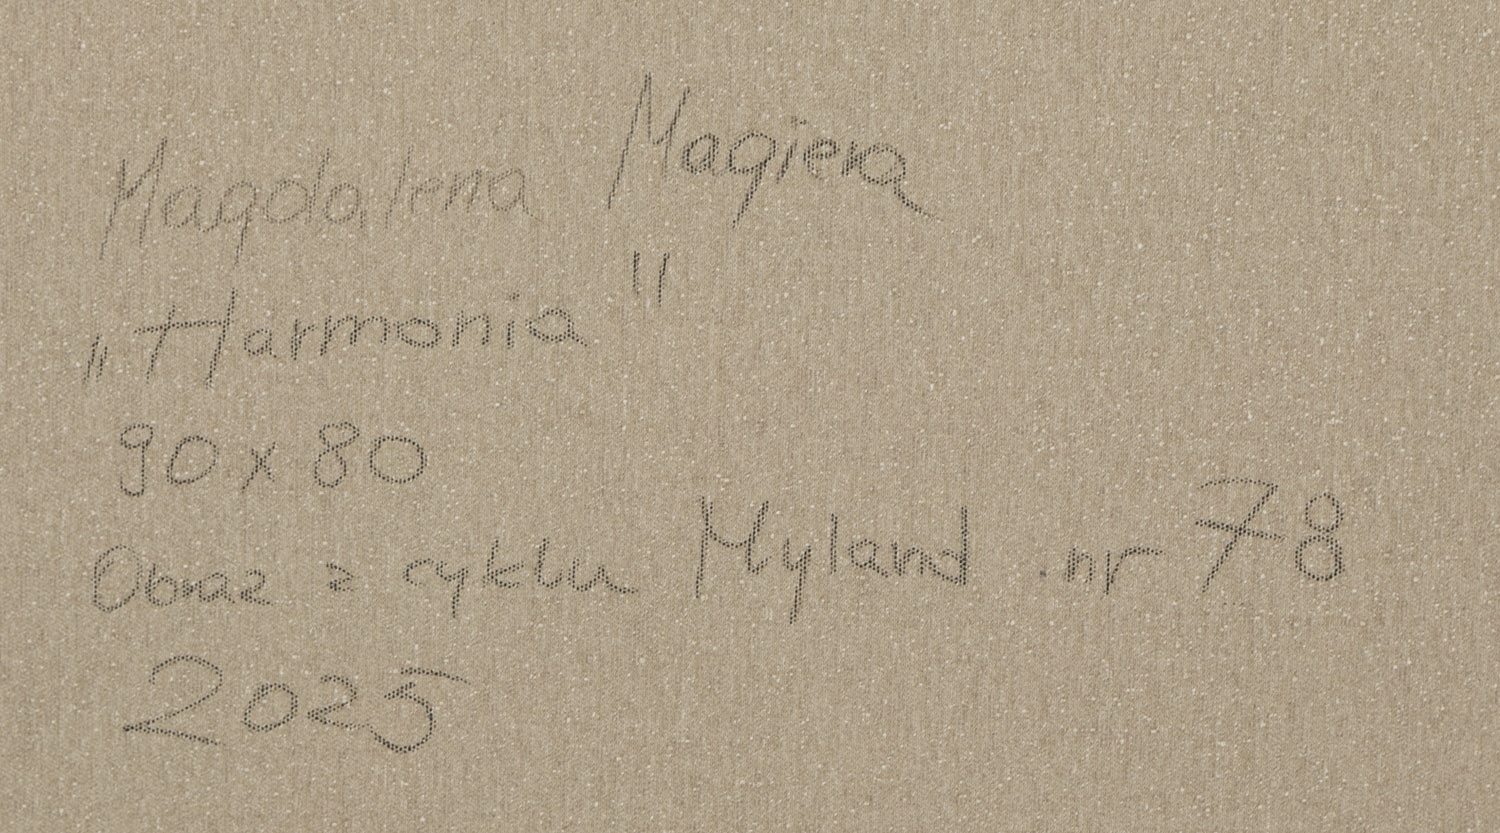 Magdalena Magiera
„Harmonia"
90x80
Obraz z cyklu Myland nr 78
2025